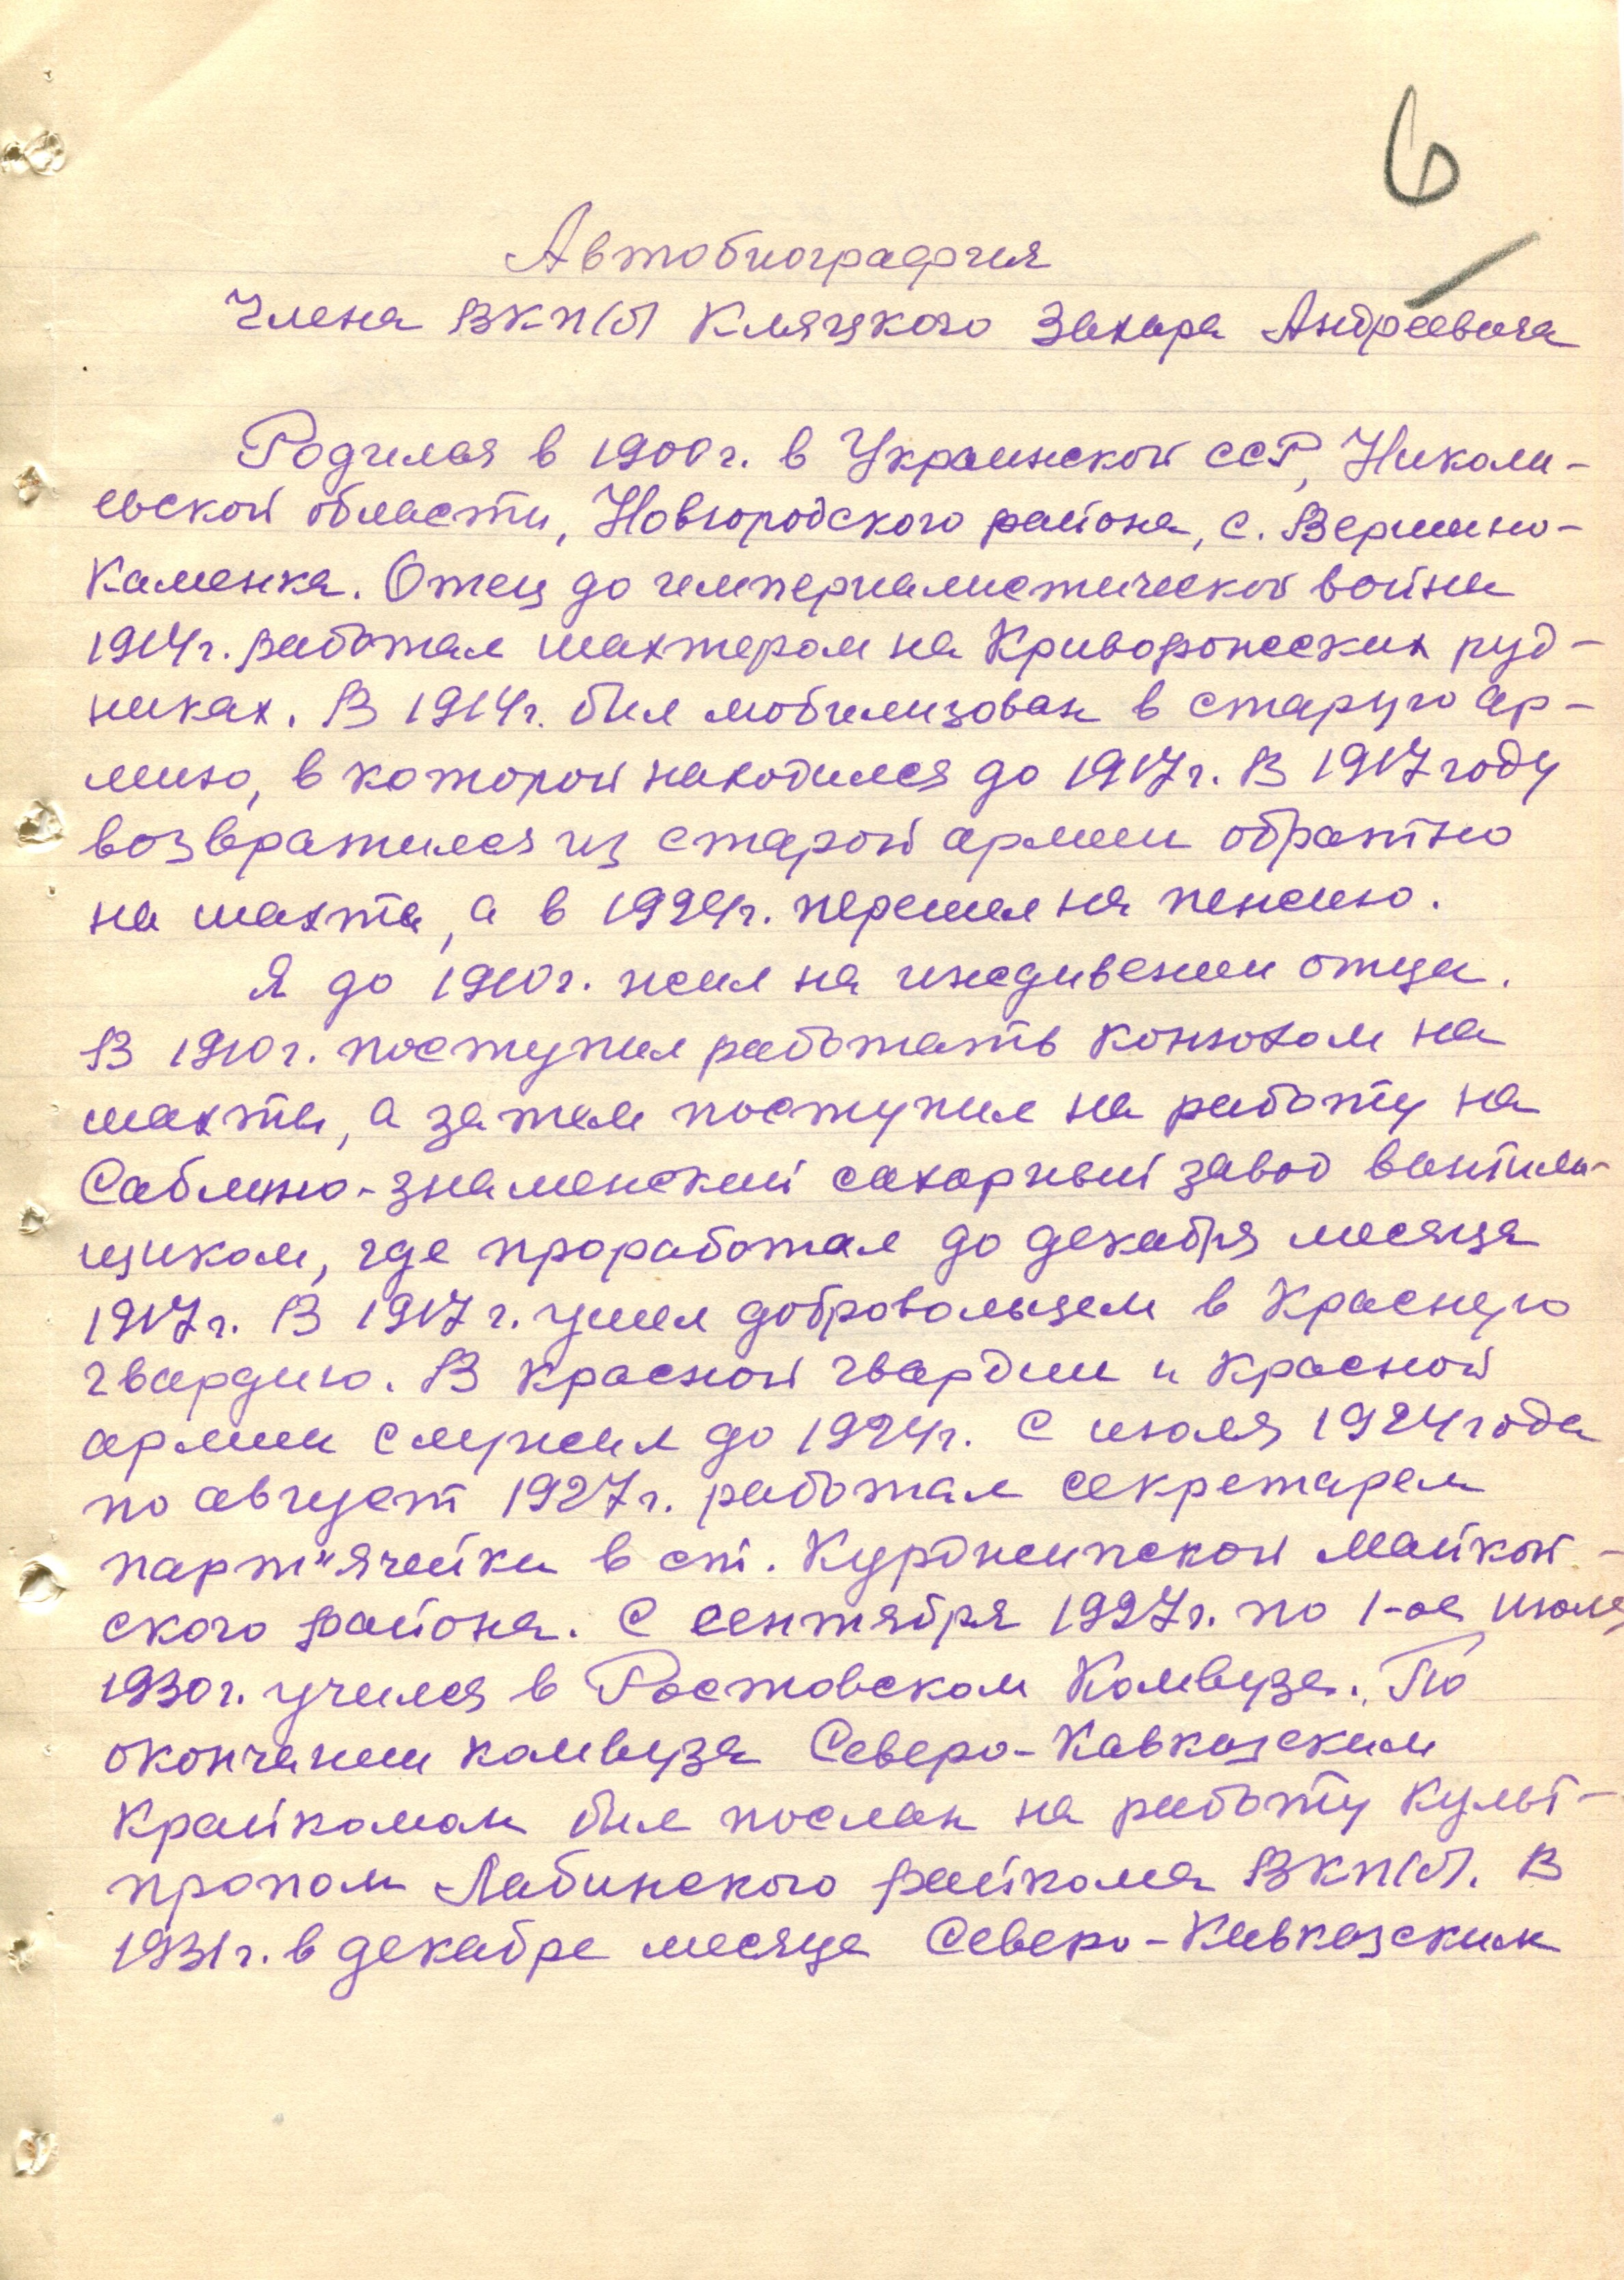 6
Автобиография
Члена ВКП(б) Кляцкого Захара Андреевича
Родился в 1900г. в Украинской ССР, Никола-
евской области, Новгородского района, с. Вершино-
Каменка. Отец до империалистической войны
1914г. работал шахтером на Криворожских руд-
никах. В 1914г. был мобилизован в старую ар-
мию, в которой находился до 1917г. В 1917 году
возвратился из старой армии обратно
на шахты, а в 1924г. перешел на пенсию.
Я до 1910г. жил на иждивении отца.
В 1910г. поступил работать коньюхом на
шахты, а затем поступил на работу на
Саблино-знаменский сахарный завод вантила-
щиком, где проработал до декабря месяца
1917г. В 1917г. ушел добровольцем в Красную
гвардию. В красной гвардии и Красной
армии служил до 1924г. С июля 1924 года
по август 1927г. работал секретарем
парт"ячейки в ст. Курджипской Майкоп-
ского района. С сентября 1927г. по 1-ое июля
1930г. учился в Ростовском Комвузе. По
окончании комвуза Северо-Кавказским
Крайкомом был послан на работу культ-
пропом Лабинского райкома ВКП(б). В
1931г. в декабре месяце Северо-Кавказским